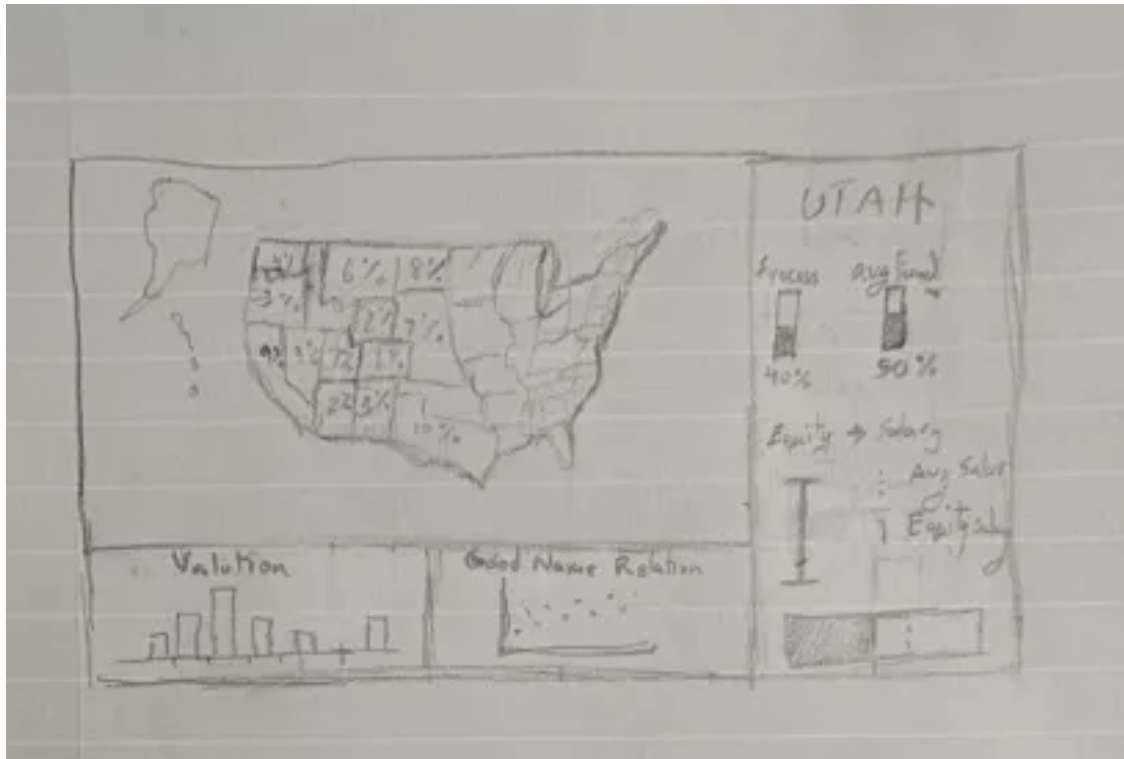 UTAH
6% 8%
3%
2% 9%
9% 3% 7% 1%
2% 3%
10%
avg Fund
40% 50%
Equity → Salary
Avg Salar
Equity Saly
Valution
Good Name Relation